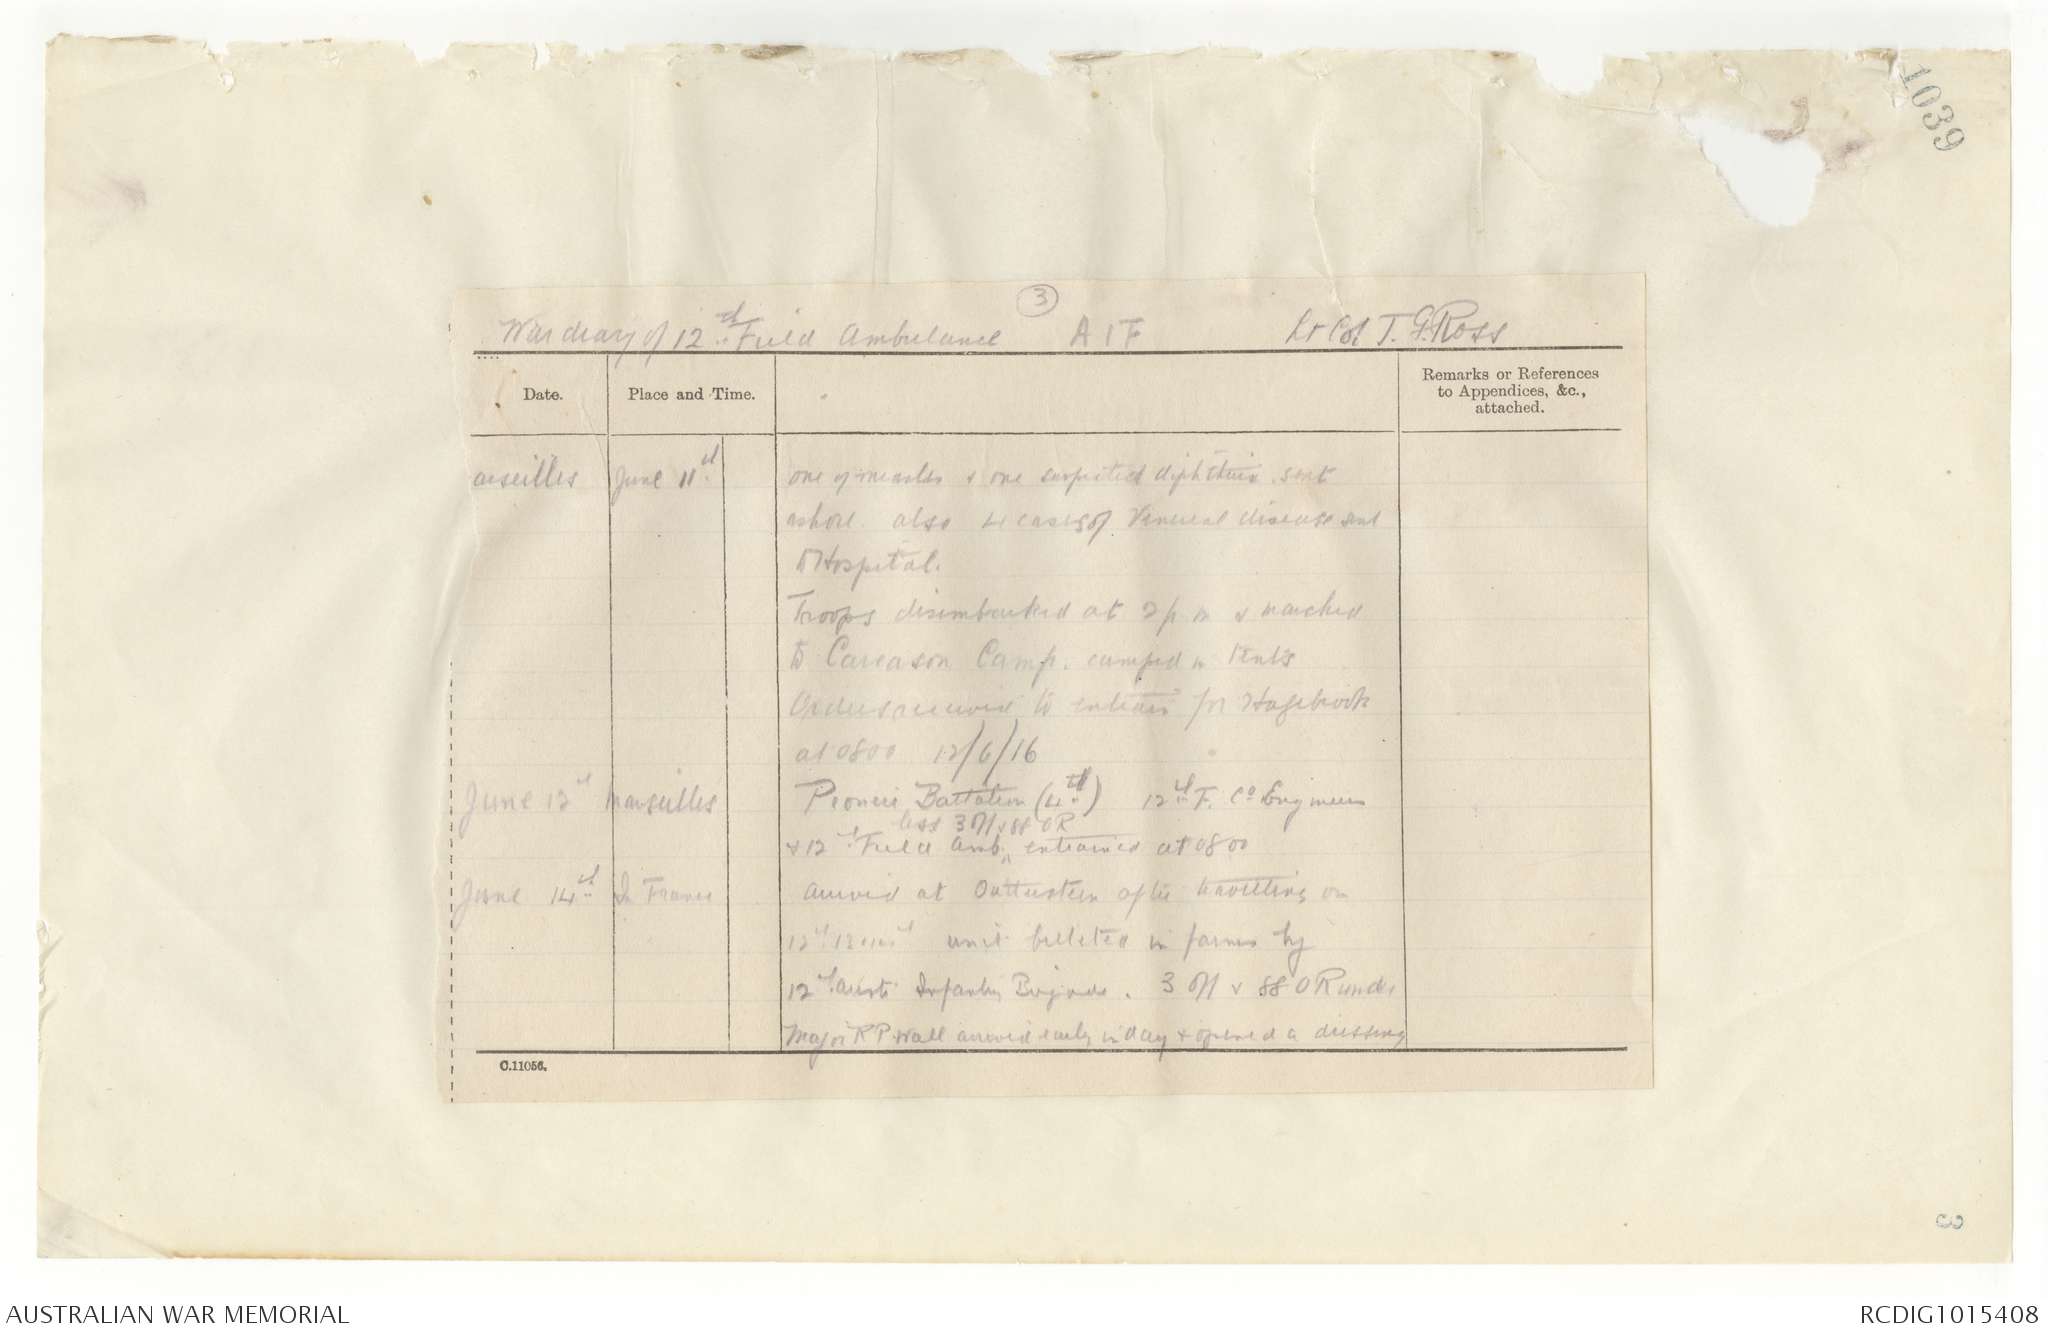 1039
3
War diary of 12th Field Ambulance A I F Lt Col T. G. Ross
Date.
Place and Time.
Remarks or References
to Appendices, &c.,
attached.
arseilles June 11th one of measles & one suspected diphtheria sent
ashore. also 4 cases of Venereal disease sent
to Hospital.
Troops disembarked at 2 p m & marched
to Carcason Camp. camped in tents
Orders received to entrain for Hazebrook
at 0800 12/6/16
June 12th Marseilles Pioneer Battalion (4th) 12th F. Co Engineers
less 3 Off & 88 O R
& 12th Field Amb. entrained at 0800
June 14th In France arrived at Outtersteen after travelling on
12th 13 unit billeted in farms by
12th Aust Infantry Brigade. 3 Off & 88 O R under
Major R P Wall arrived early in day & opened a dressing
C.11056.
3
AUSTRALIAN WAR MEMORIAL
RCDIG1015408